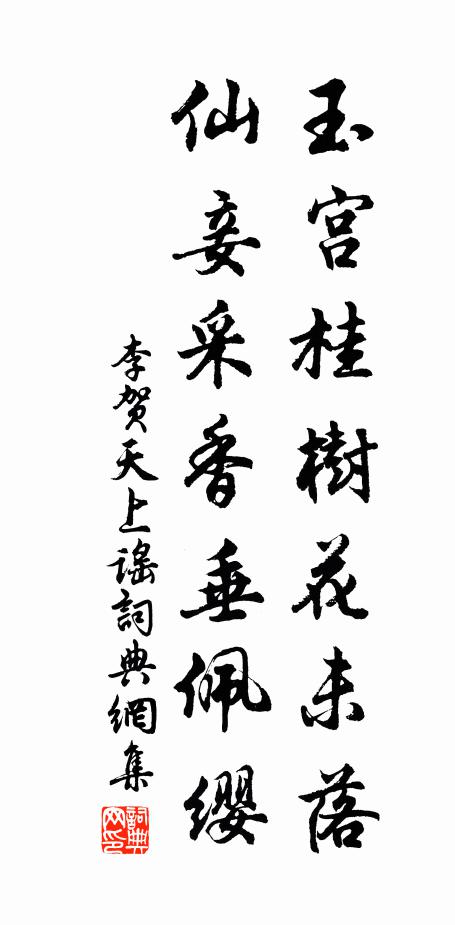 玉宫桂樹花未落
仙妾采香垂佩缨
李贺天上謠詞典網集
詞典网印